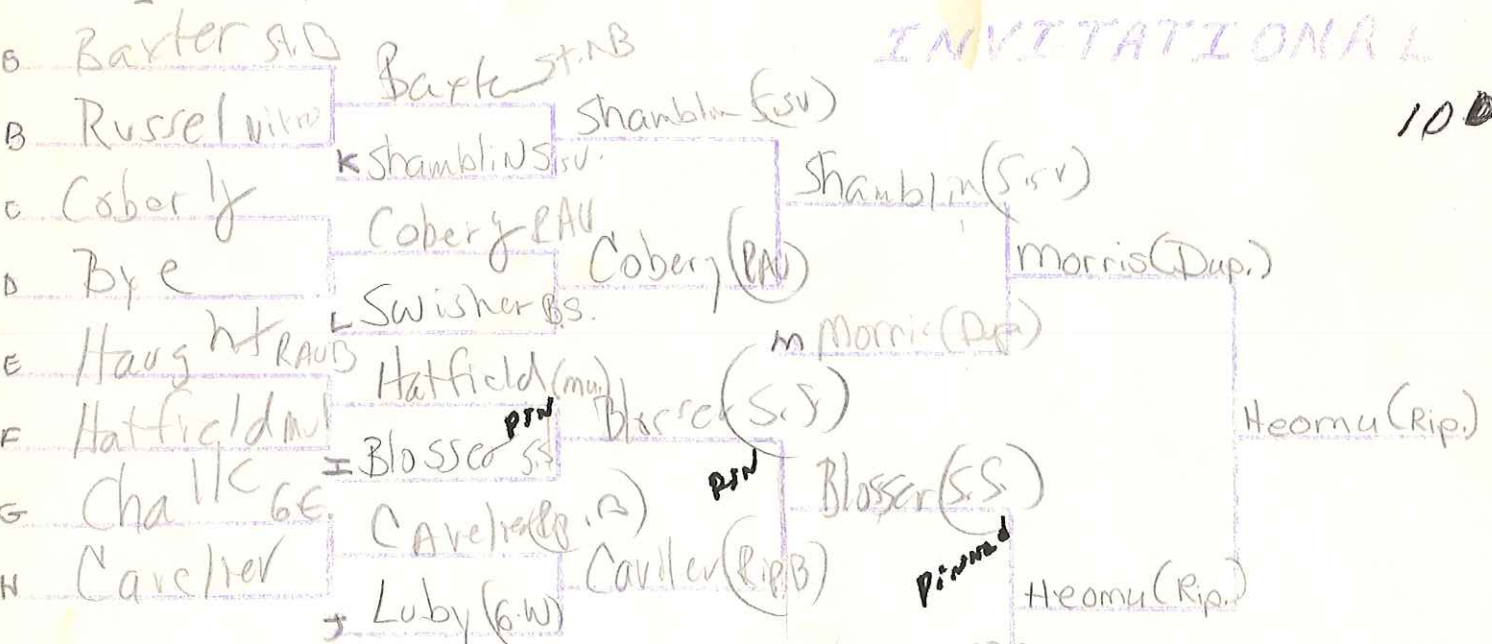 INVITATIONAL
10
B Baxter St.B
B Russel
C Coberly
D Bye
E Haught RAVB
F Hatfield mu
G G.E.
H Cavelier
Baxte St.NB
K ShambliN S.SV.
Cobery RAV
L Swisher B.S.
Hatfield (mu)
PIN
I Blosser S.S
CAvelier
J Luby (G.W)
Shamblin (SSV)
Cobery (RAV)
Blosser (S.S)
PIN
Caviler (Rip B)
Shamblin (S.SV)
m Morris (Dup)
Blosser (S.S.)
PiNNed
Morris (Dup.)
Heomu (Rip.)
Heomu (Rip.)